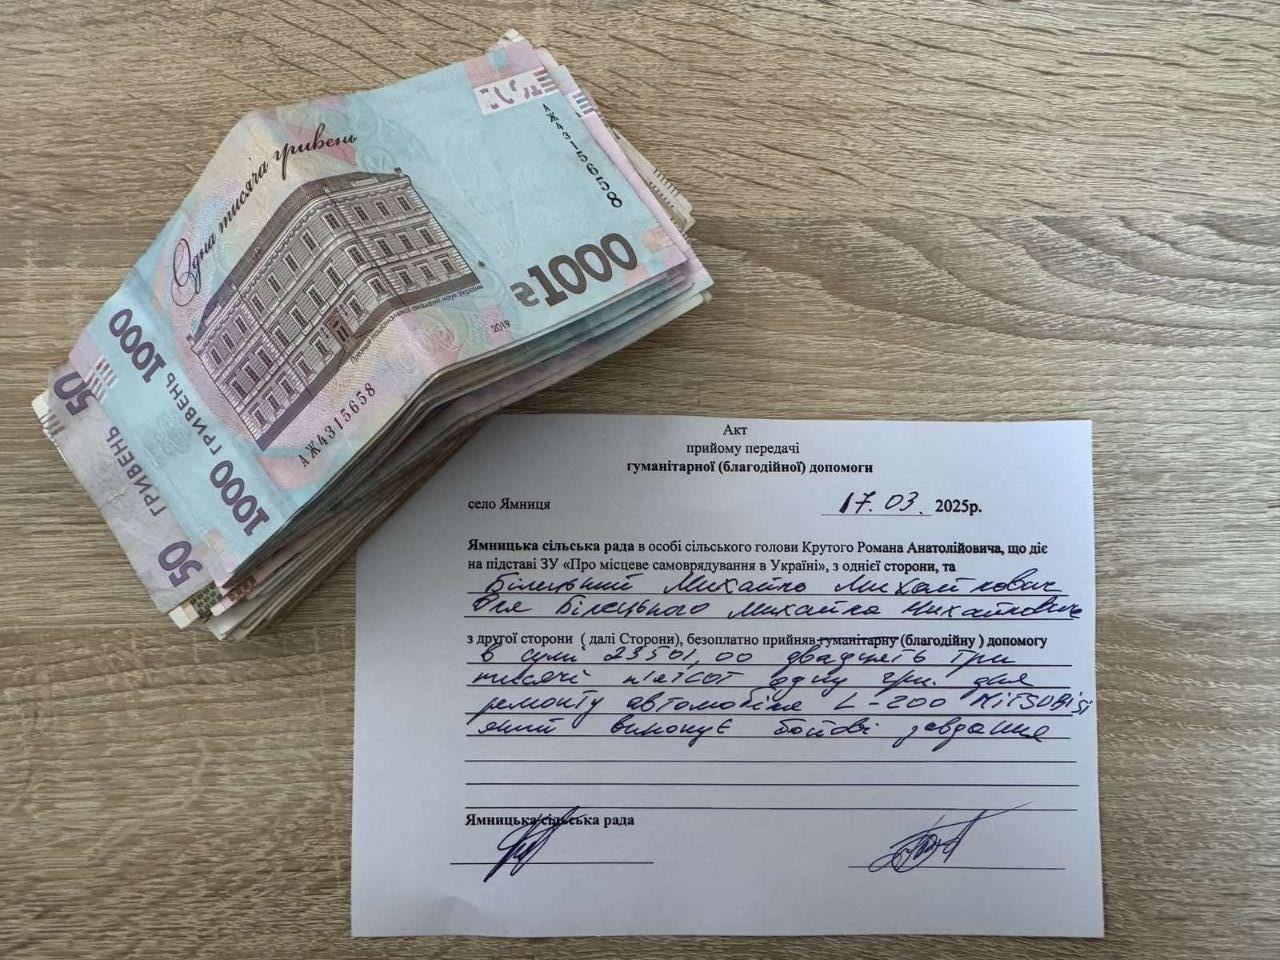 Одна тисяча гривень
АЖ4315658
₴1000
Президія Національної академії наук України
2019
АЖ4315658
1000
1000 ГРИВЕНЬ 1000
50
ГРИВЕНЬ
50
Акт
прийому передачі
гуманітарної (благодійної) допомоги
село Ямниця 17.03. 2025р.
Ямницька сільська рада в особі сільського голови Крутого Романа Анатолійовича, що діє
на підставі ЗУ «Про місцеве самоврядування в Україні», з однієї сторони, та
Білецький Михайло Михайлович
для Білецького Михайла Михайловича
з другої сторони ( далі Сторони), безоплатно прийняв гуманітарну (благодійну ) допомогу
в сумі 23501,00 двадцять три
тисячі п'ятсот одну грн. для
ремонту автомобіля L-200 MiTSUBiSi
який виконує бойові завдання
Ямницька сільська рада